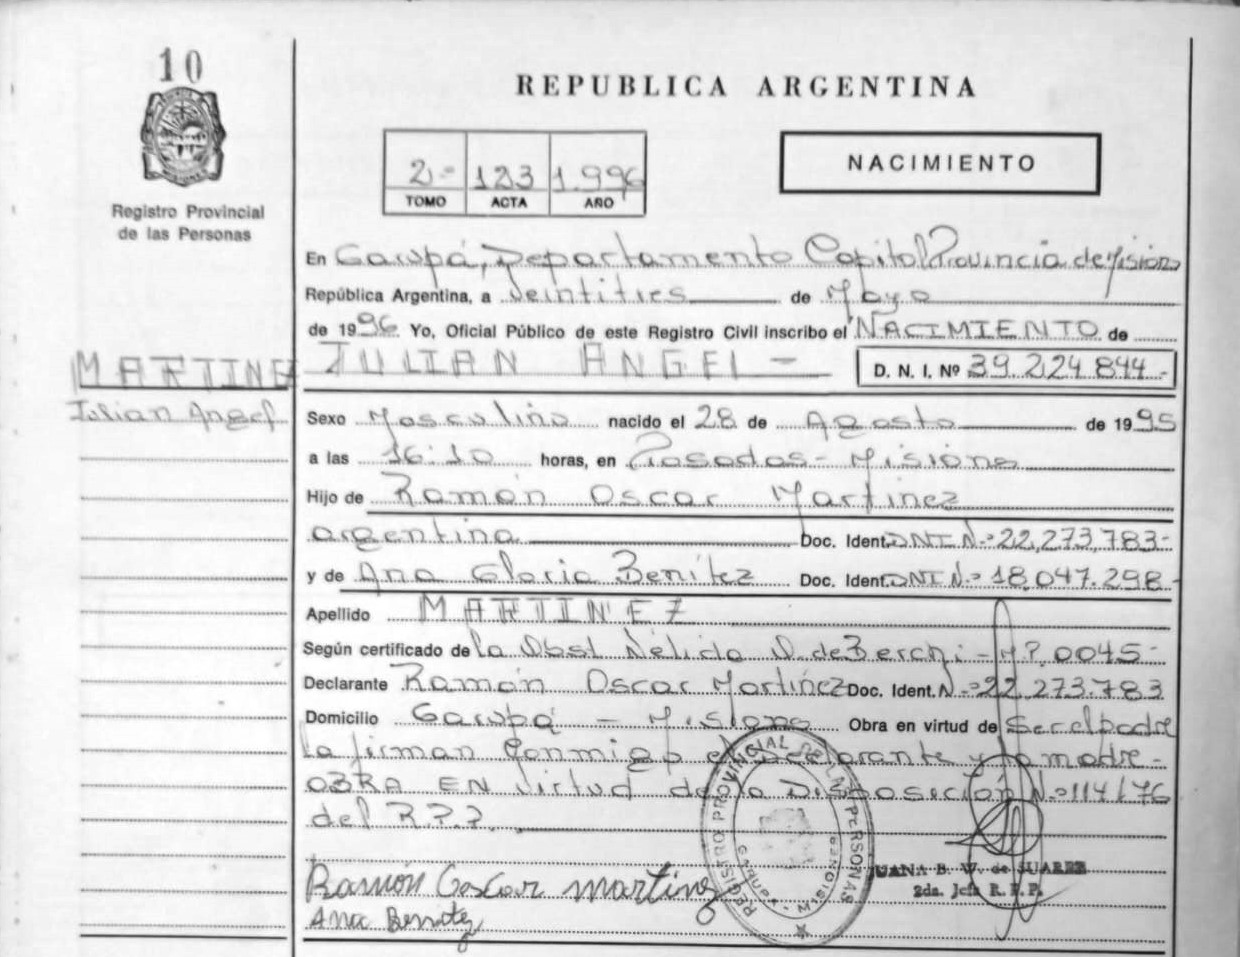 10
REPUBLICA ARGENTINA
2- 123 1.996
TOMO ACTA AÑO
NACIMIENTO
Registro Provincial
de las Personas
En Garupá, Departamento Capital Provincia de Misiones
República Argentina, a veintitres de Mayo
de 1996 Yo, Oficial Público de este Registro Civil inscribo el NACIMIENTO de
MARTINEZ
Julian Angel
JULIAN ANGEL -
D. N. I. Nº 39.224.844-
Sexo Masculino nacido el 28 de Agosto de 1995
a las 16:10 horas, en Posadas - Misiones
Hijo de Ramón Oscar Martinez
argentina Doc. Ident. DNI N.º 22.273.783-
y de Ana Gloria Benitez Doc. Ident. DNI N.º 18.047.298-
Apellido MARTINEZ
Según certificado de la Obst. Nélida de Berchi - M.P. 0045-
Declarante Ramón Oscar Martinez Doc. Ident. N.º 22.273.783
Domicilio Garupá - Misiones Obra en virtud de Ser el padre
la firman conmigo el declarante y la madre -
OBRA EN virtud de la Disposición N.º 114/76
del R.P.P.
REGISTRO PROVINCIAL DE LAS PERSONAS
GARUPA - MISIONES
Ramón Oscar Martinez
Ana Benitez
JUANA B. W. de SUAREZ
2da. Jefa R. P. P.